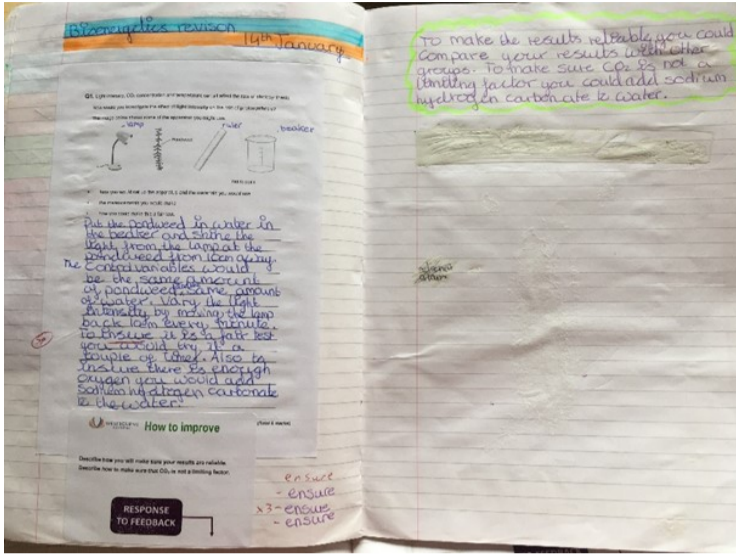 Bioenergetics revison
14th January
Q1. Light intensity, CO2 concentration and temperature can all affect the rate of
lamp
ruler
beaker
Pondweed
the measurements you would make
Put the pondweed in water in
the beaker and shine the
light from the lamp at the
pondaweed from 10cm away.
The Control variables would
be the same amount
of pondweed, same amount
of water. Vary the light
intensity by moving the lamp
back 10cm every minute.
To ensue it is a fair test
you would try it a
couple of times. Also to
insure there is enough
oxygen you would add
sodium hydrogen carbonate
to the water.
How to improve
Describe how you will make sure your results are reliable.
Describe how to make sure that CO2 is not a limiting factor.
RESPONSE
TO FEEDBACK
ensure
- ensure
x3 - ensure
- ensure
To make the results reliable you could
compare your results with other
groups. To make sure CO2 is not a
limiting factor you could add sodium
hydrogen carbonate to water.